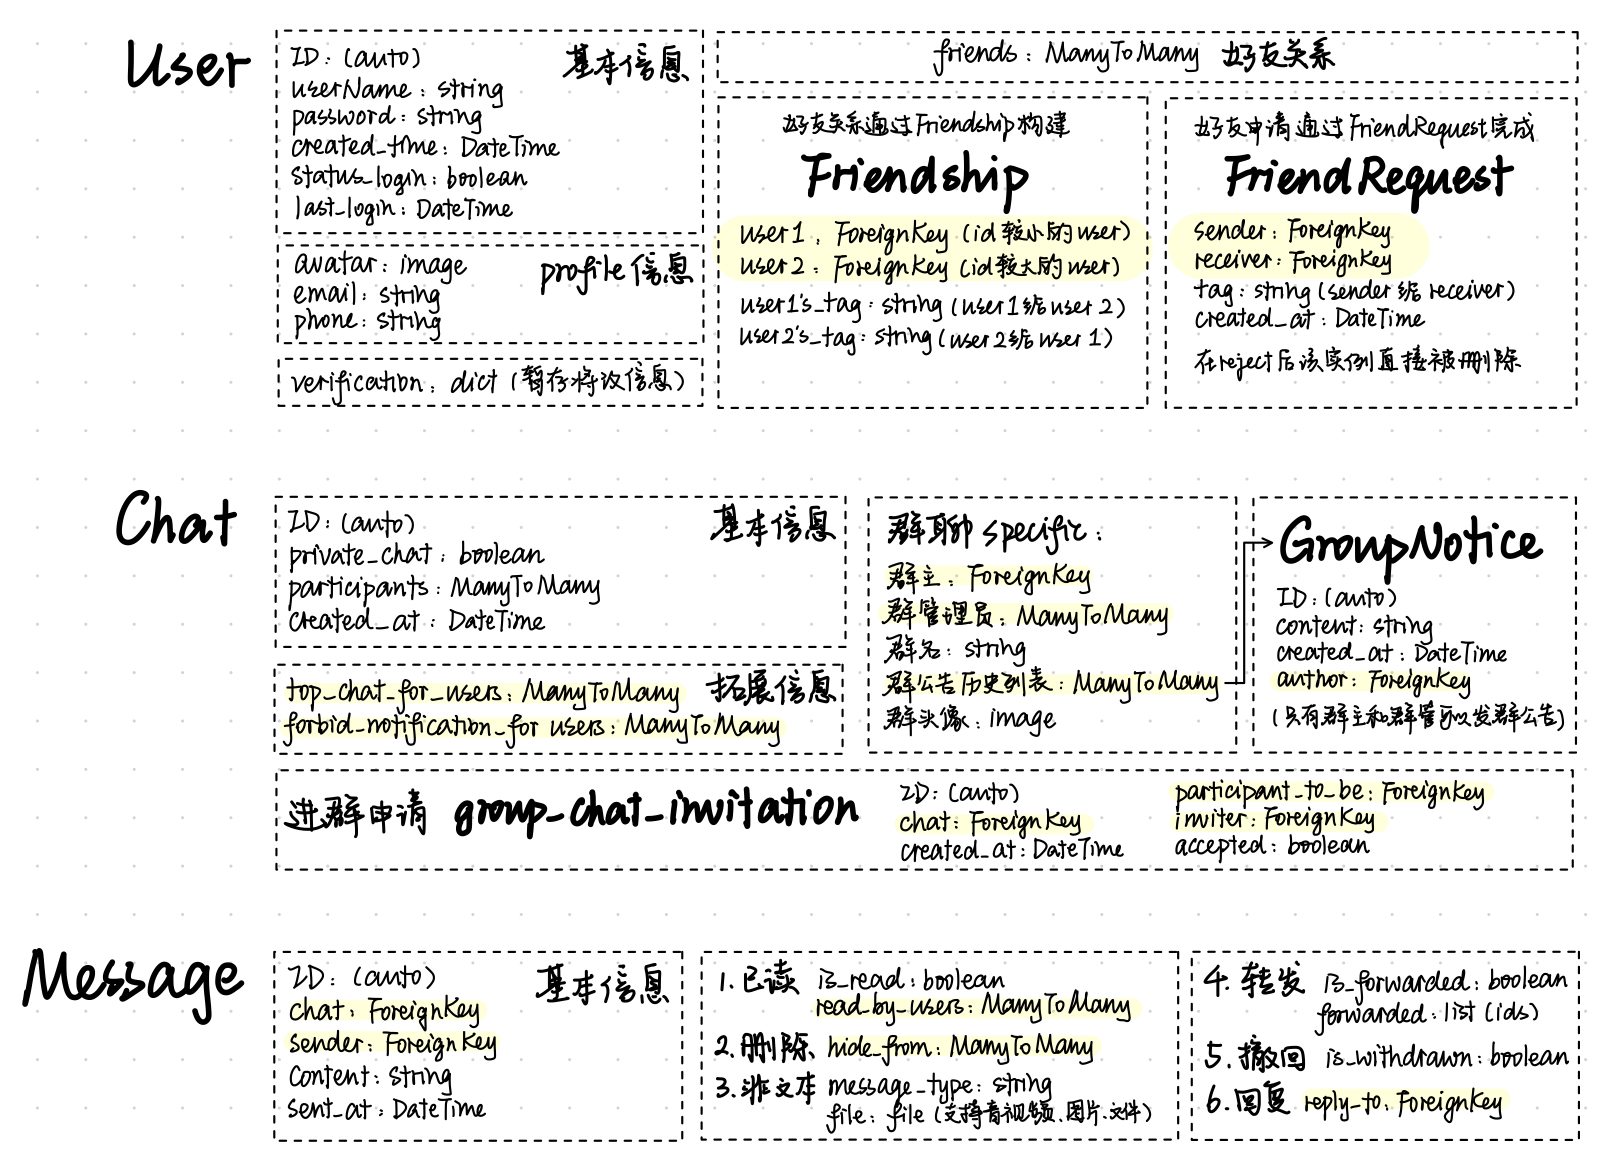 User
ID: (auto) 基本信息
userName: string
password: string
created_time: DateTime
status_login: boolean
last_login: DateTime
avatar: image profile信息
email: string
phone: string
verification: dict (暂存将改信息)
friends: ManyToMany 好友关系
好友关系通过Friendship构建
Friendship
user1: ForeignKey (id较小的user)
user2: ForeignKey (id较大的user)
user1's_tag: string (user1给user2)
user2's_tag: string (user2给user1)
好友申请通过FriendRequest完成
FriendRequest
sender: ForeignKey
receiver: ForeignKey
tag: string (sender给receiver)
created_at: DateTime
在reject后该实例直接被删除
Chat
ID: (auto) 基本信息
private_chat: boolean
participants: ManyToMany
created_at: DateTime
top_chat_for_users: ManyToMany 拓展信息
forbid_notification_for users: ManyToMany
群聊 specific:
群主: ForeignKey
群管理员: ManyToMany
群名: string
群公告历史列表: ManyToMany
群头像: image
GroupNotice
ID: (auto)
content: string
created_at: DateTime
author: ForeignKey
(只有群主和群管可以发群公告)
进群申请 group_chat_invitation
ID: (auto)
chat: ForeignKey
created_at: DateTime
participant_to_be: ForeignKey
inviter: ForeignKey
accepted: boolean
Message
ID: (auto) 基本信息
Chat: ForeignKey
sender: ForeignKey
content: string
sent_at: DateTime
1. 已读 is_read: boolean
read_by_users: ManyToMany
2. 删除 hide_from: ManyToMany
3. 非文本 message_type: string
file: file (支持音视频、图片、文件)
4. 转发 is_forwarded: boolean
forwarded: list (ids)
5. 撤回 is_withdrawn: boolean
6. 回复 reply_to: ForeignKey